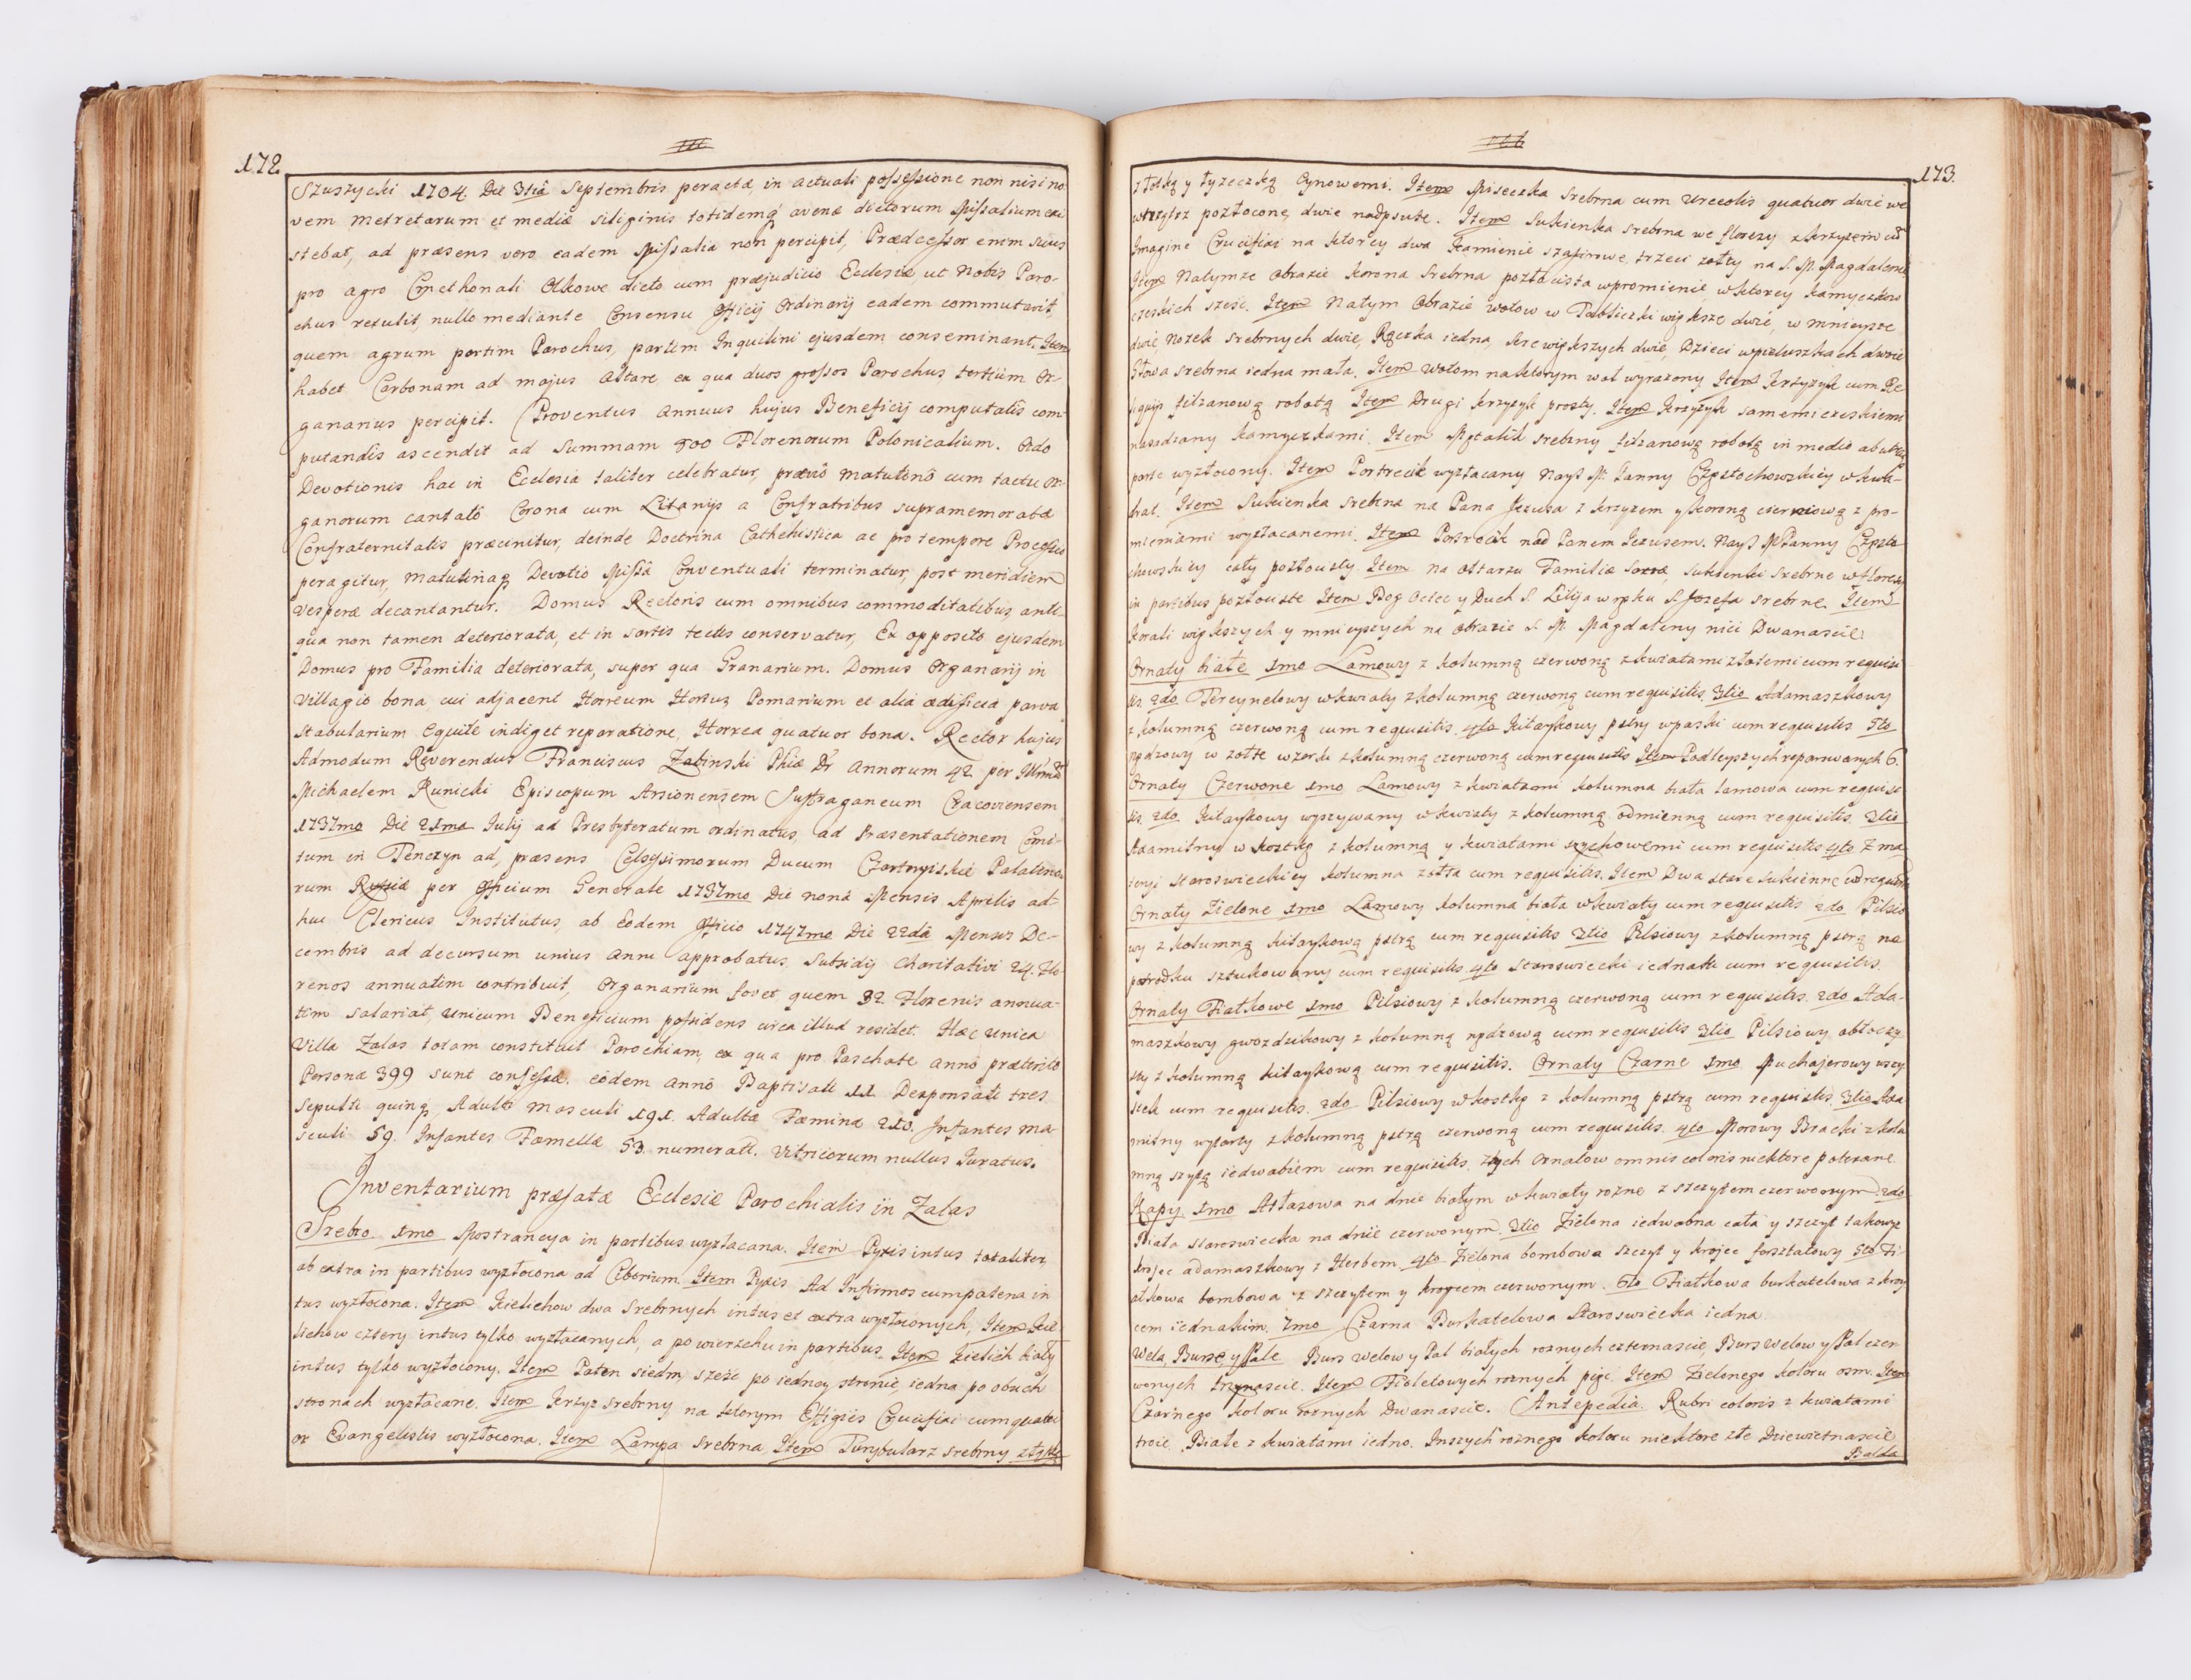 172.
Szuszycki 1704. Die 3tiâ Septembris peractâ, in actuali possessione non nisi no-
vem metretarum et mediæ siliginis totidemq avenæ dictorum Missalium exi
stebat, ad præsens vero eadem Missalia non percipit, Prædecessor enim suus
pro agro Cmethonali Olkowe dicto cum præjudicio Ecclesiæ, ut Nobis Paro-
chus retulit, nullo mediante Consensu Officij Ordinarij eadem commutavit,
quem agrum partim Parochus, partim Inquilini ejusdem conseminant. Item
habet Carbonam ad majus Altare ex qua duos grossos Parochus, tertium Or-
ganarius percipit. Proventus annuus hujus Beneficij computatis com-
putandis ascendit ad Summam 500 Florenorum Polonicalium. Ordo
Devotionis hac in Ecclesia taliter celebratur, prævio Matutino cum tactu Or-
ganorum cantatô Corona cum Litanijs a Confratribus supramemoratæ
Confraternitatis præcinitur, deinde Doctrina Cathehistica ac pro tempore Processio
peragitur, Matutinaq Devotio Missâ Conventuali terminatur, post meridiem
Vesperæ decantantur. Domus Rectoris cum omnibus commoditatibus, anti-
qua non tamen deteriorata, et in sartis tectis conservatur, Ex opposito ejusdem
Domus pro Familia deteriorata, super qua Granarium. Domus Organarij in
Villagio bona, cui adjacent Horreum Hortus Pomarium et alia ædificia parva
Stabularium Equile indiget reparatione, Horrea quatuor bona. Rector hujus
Admodum Reverendus Franciscus Zabinski Phiæ Dr Annorum 42 per
Michaelem Kunicki Episcopum Arsionensem Suffraganeum Cracoviensem
1737mo Die 21ma Julij ad Presbyteratum ordinatus, ad Præsentationem Comi-
tum in Tenczyn ad præsens Celsissimorum Ducum Czartoryiskie Palatino-
rum Russiæ per Officium Generale 1737mo Die nonâ Mensis Aprilis ad-
huc Clericus Institutus, ab Eodem Officio 1747mo Die 22dâ Mensis De-
cembris ad decursum unius anni approbatus, Subsidij Charitativi 24. Flo-
renos annuatim contribuit, Organarium fovet, quem 32 Florenis annua-
tim Salariat, Unicum Beneficium possidens circa illud residet. Hæc unica
Villa Zalas totam constituit Parochiam, ex qua pro Paschate annô præteritô
Personæ 399 sunt confessæ. eôdem annô Baptisati 11. Desponsati tres.
Sepulti quinq, Adulti Masculi 191. Adultæ Fæminæ 210. Infantes Ma-
sculi 59. Infantes Fæmellæ 53. numerati. Vitricorum nullus Juratus.
Inventarium præfatæ Ecclesiæ Parochialis in Zalas
Srebro 1mo Mostrancya in partibus wyzłacana. Item Pyxis intus totaliter,
ab extra in partibus wyzłocona ad Ciborium. Item Pyxis Ad Infirmos cum patena in
tus wyzłocona. Item Kielichow dwa Srebrnych intus et extra wyzłoconych, Item Kie
lichow cztery intus tylko wyzłacanych, a po wierzchu in partibus. Item Kielich biały
intus tylko wyzłocony. Item Paten siedm, sześć po iedney stronie, iedna po obuch
stronach wyzłacane. Item Krzyz srebrny na ktorym Effigies Crucifixi cum quatu
or Evangelistis wyzłocona. Item Lampa srebrna Item Turybularz srebrny złyżką
173.
z łotką y łyzeczką Cynowemi. Item Miseczka srebrna cum Urceolis quatuor dwie we
wnątrz pozłocone, dwie nadpsute. Item Sukienka srebrna we floresy z krzyzem cū
Imagine Crucifixi na ktorey dwa kamienie szafirowe, trzeci zołty na S. M. Magdalenie
Item Natymze obrazie korona srebrna pozłacista wpromienie, wktorey kamyczkow
czeskich sześć. Item Natym Obrazie wotow w Tabliczki większe dwie, w mnieysze
dwie Nozek srebrnych dwie, Rączka iedna, serc większych dwie, Dzieci wpieluszkach dwoie
Głowa srebrna iedna mała, Item wotom naktorym woł wyrazony Item Krzyzyk cum Re
liquijs filzanową robotą Item Drugi krzyzyk prosty. Item Krzyzyk samemi czeskiemi
nasadzany kamyczkami. Item Mętalik srebrny filzanową robotą in medio ab utraq
parte wyzłocony. Item Portrecik wyzłacany Nays M. Panny Częstochowskiey w kwa-
drat. Item Sukienka srebrna na Pana Jezusa z krzyzem y koroną cierniową z pro-
mieniami wyzłacanemi. Item Portrecik nad Panem Jezusem. Nays M Panny Często
chowskiey cały pozłocisty. Item na ołtarzu Familiæ Sacræ, Sukienki srebrne wfloresy
in partibus pozłociste Item Bog Ociec y Duch S. Lilija wręku S. Jozefa srebrne. Item
Korali większych y mnieyszych na obrazie S. M. Magdaleny nici Dwanaście.
Ornaty białe 1mo Lamowy z kolumną czerwoną zkwiatami złotemi cum requisi
tis. 2do Tercynelowy wkwiaty zkolumną czerwoną cum requisitis. 3tio Adamaszkowy
z kolumną czerwoną cum requisitis. 4to Kitaykowy pstry wpaski cum requisitis 5to
rądzowy w zołte wzorki zkolumną czerwoną cum requisitis Item Podleyszych reparowanych 6.
Ornaty Czerwone 1mo Lamowy z kwiatami kolumna biała lamowa cum requisi
tis. 2do Kitaykowy wyszywany wkwiaty z kolumną odmienną cum requisitis. 3tio
Axamitny w kostkę z kolumną y kwiatami szychowemi cum requisitis 4to Z ma
teryi staroswieckiey kolumna zołta cum requisitis. Item Dwa stare sukienne
Ornaty Zielone 1mo Lamowy kolumna biała wkwiaty cum requisitis 2do Pilsio
wy z kolumną kitaykową pstrą cum requisitis 3tio Pilsiowy zkolumną pstrą na
posrodku sztukowany cum requisitis. 4to Staroswiecki iednaki cum requisitis.
Ornaty Fiałkowe 1mo Pilsiowy z kolumną czerwoną cum requisitis. 2do Ada-
maszkowy gwozdzikowy z kolumną rądzową cum requisitis 3tio Pilsiowy obłoczy
sty z kolumną kitaykową cum requisitis. Ornaty Czarne 1mo Muchajerowy
cum requisitis. 2do Pilsiowy wkostkę z kolumną pstrą cum requisitis. 3tio Axa
mitny wytarty zkolumną pstrą czerwoną cum requisitis. 4to Morowy Bracki zkolu
mną szytą iedwabiem cum requisitis. Ztych Ornatow omnis coloris niektore poterane.
Kapy 1mo Atłasowa na dnie białym wkwiaty rozne z szczytem czerwonym. 2do
Biała staroswiecka na dnie czerwonym. 3tio Zielona iedwabna cała y szczyt takowyz
krojec adamaszkowy z Herbem. 4to Zielona bombowa szczyt y krojec forsztatowy 5to Fi-
ałkowa bombowa z szczytem y kroyciem czerwonym. 6to Fiałkowa burkatelowa z kroy
cem iednakim. 7mo Czarna Burkatelowa Staroswiecka iedna
Wela, Burse y Pale Burs Welow y Pal białych roznych czternaście, Burs Welow y Pal czer
wonych trzynaście. Item Fioletowych roznych pięć. Item Zielonego koloru osm. Item
Czarnego koloru roznych Dwanaście. Antepedia. Rubri coloris z kwiatami
troie. Białe z kwiatami iedno. Inszych roznego koloru niektore złe Dziewietnascie
Balda